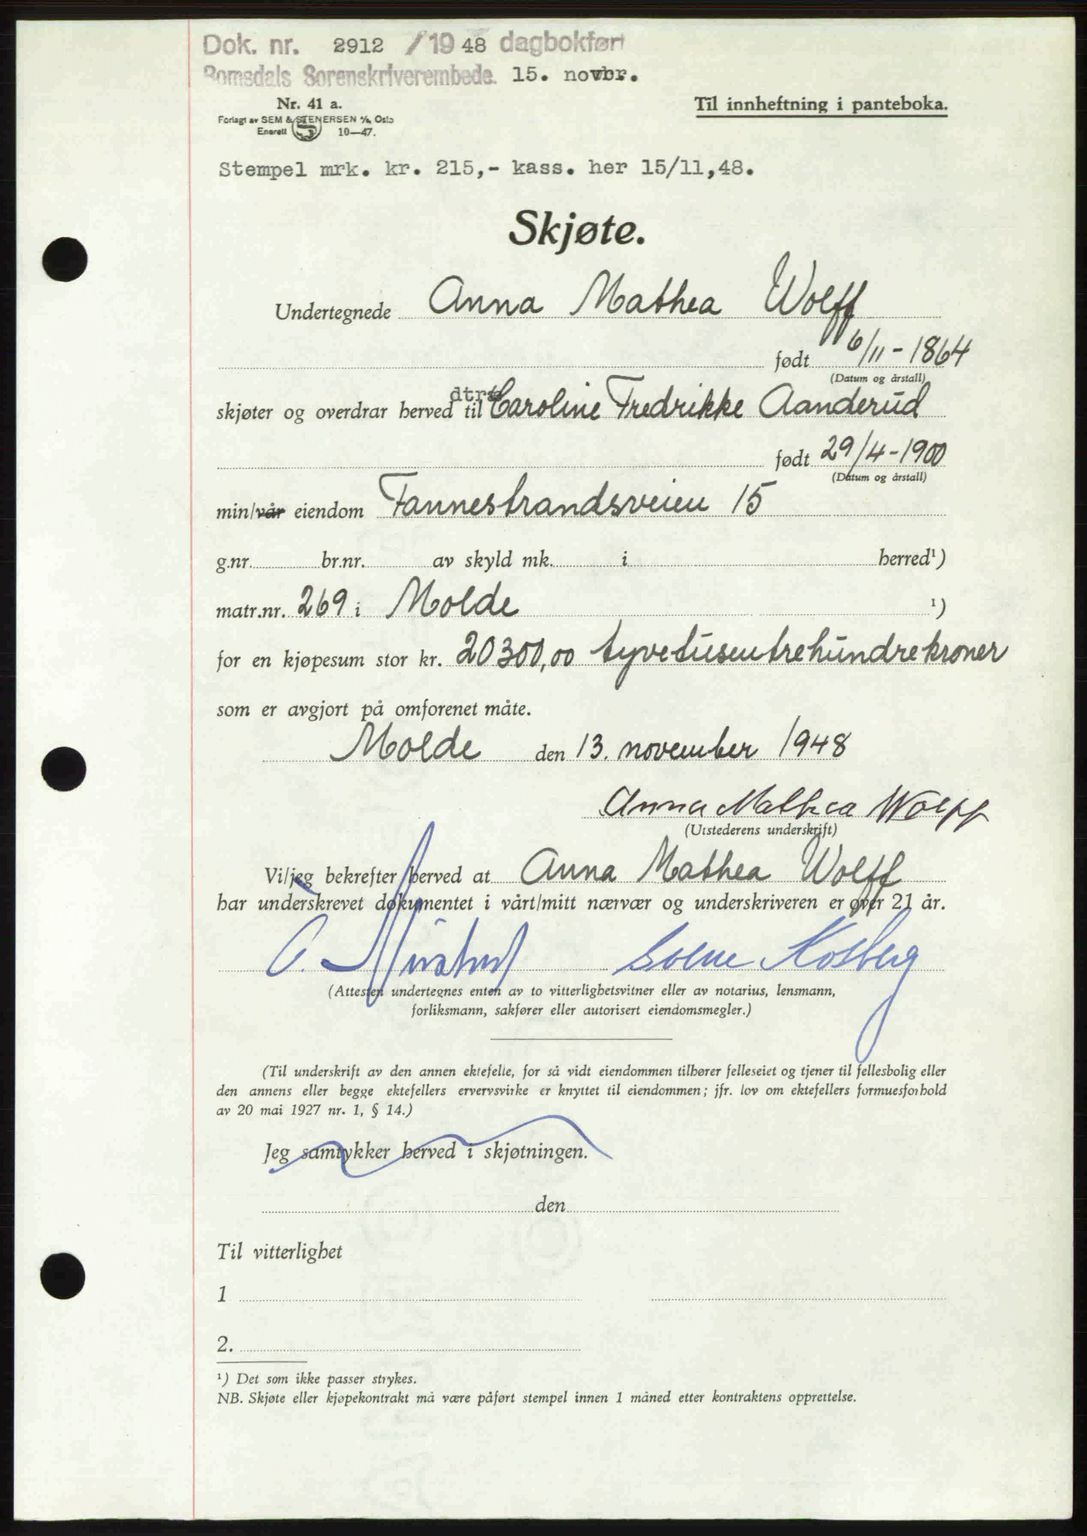 Dok. nr. 2912 / 1948 dagbokført
Romsdals Sorenskriverembede. 15. novbr.
Nr. 41 a.
Til innheftning i panteboka.
Forlagt av SEM & STENERSEN A/S, Oslo
Enerett 10—47.
Stempel mrk. kr. 215,- kass. her 15/11,48.
Skjøte.
Undertegnede Anna Mathea Wolff
født 6/11-1864
(Datum og årstall)
skjøter og overdrar herved til Caroline Fredrikke Aanderud
født 29/4-1900
(Datum og årstall)
min/vår eiendom Fannestrandsveien 15
g.nr. br.nr. av skyld mk. i herred¹)
matr.nr. 269 i Molde ¹)
for en kjøpesum stor kr. 20300,00 tyvetusentrehundrekroner
som er avgjort på omforenet måte.
Molde den 13. november 1948
Anna Mathea Wolff
(Utstederens underskrift)
Vi/jeg bekrefter herved at Anna Mathea Wolff
har underskrevet dokumentet i vårt/mitt nærvær og underskriveren er over 21 år.
(Attesten undertegnes enten av to vitterlighetsvitner eller av notarius, lensmann,
forliksmann, sakfører eller autorisert eiendomsmegler.)
(Til underskrift av den annen ektefelle, for så vidt eiendommen tilhører felleseiet og tjener til fellesbolig eller
den annens eller begge ektefellers ervervsvirke er knyttet til eiendommen; jfr. lov om ektefellers formuesforhold
av 20 mai 1927 nr. 1, § 14.)
Jeg samtykker herved i skjøtningen.
den
Til vitterlighet
1
2.
¹) Det som ikke passer strykes.
NB. Skjøte eller kjøpekontrakt må være påført stempel innen 1 måned etter kontraktens opprettelse.